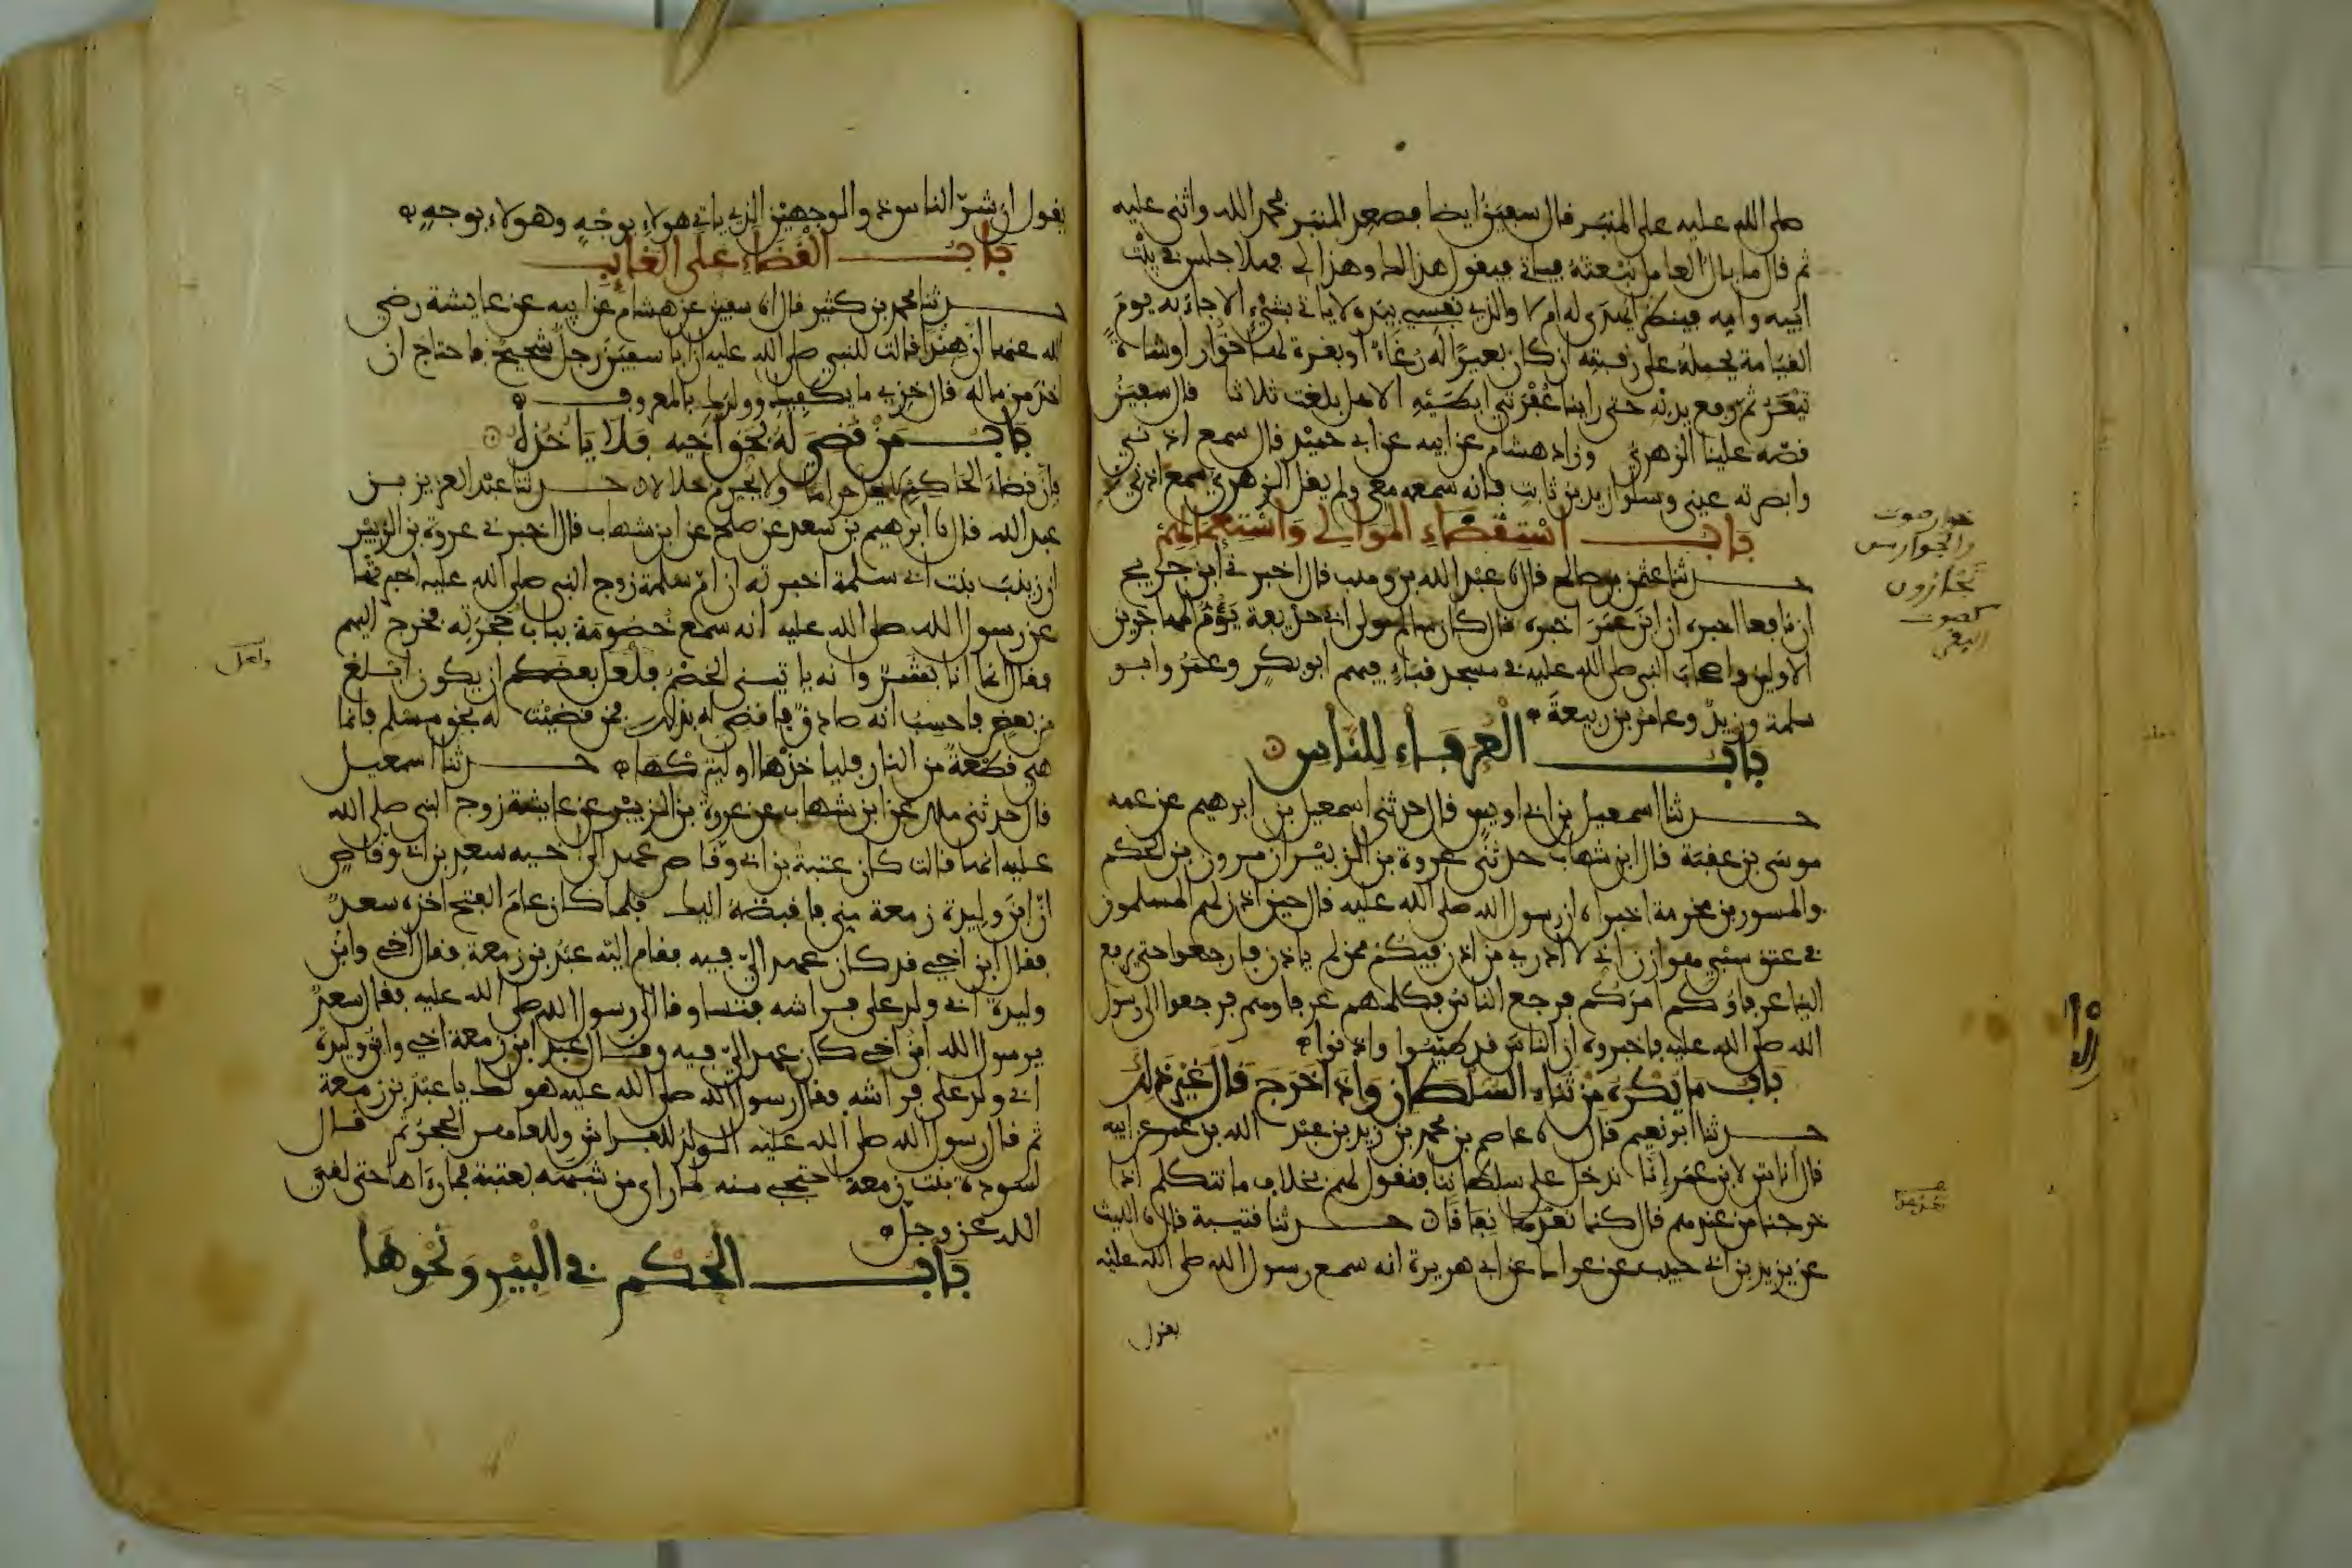 صلى الله عليه على المنبر قال سفين أيضا فصعد المنبر فحمد الله واثنى عليه
ثم قال ما بال العامل نبعثه فياتي فيقول هذا لك وهذا لي فهلا جلس في بيت
ابيه وامه فينظر ايهدى له ام لا والذي نفسي بيده لا ياتي بشيء الا جاء به يوم
القيامة يحمله على رقبته ان كان بعيرا له رغاء او بقرة لها خوار او شاة
تيعر ثم رفع يديه حتى راينا عفرتي ابطيه الا هل بلغت ثلاثا قال سفين
قصه علينا الزهري وزاد هشام عن ابيه عن ابي حميد قال سمع اذني
وابصرته عيني وسلوا زيد بن ثابت فانه سمعه معي ولم يقل الزهري سمع اذني
باب استقضاء الموالي واستعمالهم
حدثنا عثمن بن صالح قال نا عبد الله بن وهب قال اخبرني ابن جريج
ان نافعا اخبره ان ابن عمر اخبره قال كان سالم مولى ابي حذيفة يؤم المهاجرين
الاولين واصحاب النبي صلى الله عليه في مسجد قباء فيهم ابو بكر وعمر وابو
سلمة وزيد وعامر بن ربيعة
باب العرفاء للناس
حدثنا اسمعيل بن ابي اويس قال حدثني اسمعيل بن ابرهيم عن عمه
موسى بن عقبة قال ابن شهاب حدثني عروة بن الزبير ان مرون بن الحكم
والمسور بن مخرمة اخبراه ان رسول الله صلى الله عليه قال حين اذن لهم المسلمون
في عتق سبي هوازن اني لا ادري من اذن فيكم ممن لم ياذن فارجعوا حتى يرفع
الينا عرفاؤكم امركم فرجع الناس فكلمهم عرفاوهم فرجعوا الى رسول
الله صلى الله عليه فاخبروه ان الناس قد طيبوا واذنوا
باب ما يكره من ثناء السلطان واذا خرج قال غير ذلك
حدثنا ابو نعيم قال نا عاصم بن محمد بن زيد بن عبد الله بن عمر عن ابيه
قال اناس لابن عمر انا ندخل على سلطاننا فنقول لهم بخلاف ما نتكلم اذا
خرجنا من عندهم قال كنا نعدها نفاقا حدثنا قتيبة قال نا الليث
عن يزيد بن ابي حبيب عن عراك عن ابي هريرة انه سمع رسول الله صلى الله عليه
خوار صوت
والجوار من
تجأرون
كصوت
البقر
يقول ان شر الناس ذو الوجهين الذي ياتي هولاء بوجه وهولاء بوجه
باب القضاء على الغايب
حدثنا محمد بن كثير قال نا سفين عن هشام عن ابيه عن عايشة رضي
الله عنها ان هندا قالت للنبي صلى الله عليه ان ابا سفين رجل شحيح فاحتاج ان
اخذ من ماله قال خذي ما يكفيك وولدك بالمعروف
باب من قضي له بحق اخيه فلا ياخذه
فان قضاء الحاكم لا يحل حراما ولا يحرم حلالا حدثنا عبد العزيز بن
عبد الله قال نا ابرهيم بن سعد عن صلح عن ابن شهاب قال اخبرني عروة بن الزبير
ان زينب بنت ابي سلمة اخبرته ان ام سلمة زوج النبي صلى الله عليه اخبرتها
عن رسول الله صلى الله عليه انه سمع خصومة بباب حجرته فخرج اليهم
فقال انما انا بشر وانه ياتيني الخصم فلعل بعضكم ان يكون ابلغ
من بعض فاحسب انه صادق فاقضي له بذلك فمن قضيت له بحق مسلم فانما
هي قطعة من النار فلياخذها او ليتركها حدثنا اسمعيل
قال حدثني ملك عن ابن شهاب عن عروة بن الزبير عن عايشة زوج النبي صلى الله
عليه انها قالت كان عتبة بن ابي وقاص عهد الى اخيه سعد بن ابي وقاص
ان ابن وليدة زمعة مني فاقبضه اليك فلما كان عام الفتح اخذه سعد
فقال ابن اخي قد كان عهد الي فيه فقام اليه عبد بن زمعة فقال اخي وابن
وليدة ابي ولد على فراشه فتساوقا الى رسول الله صلى الله عليه فقال سعد
يرسول الله ابن اخي كان عهد الي فيه وقال عبد ابن زمعة اخي وابن وليدة
ابي ولد على فراشه فقال رسول الله صلى الله عليه هو لك يا عبد بن زمعة
ثم قال رسول الله صلى الله عليه الولد للفراش وللعاهر الحجر ثم قال
لسودة بنت زمعة احتجبي منه لما راى من شبهه بعتبة فما رءاها حتى لقي
الله عز وجل
باب الحكم في البير ونحوها